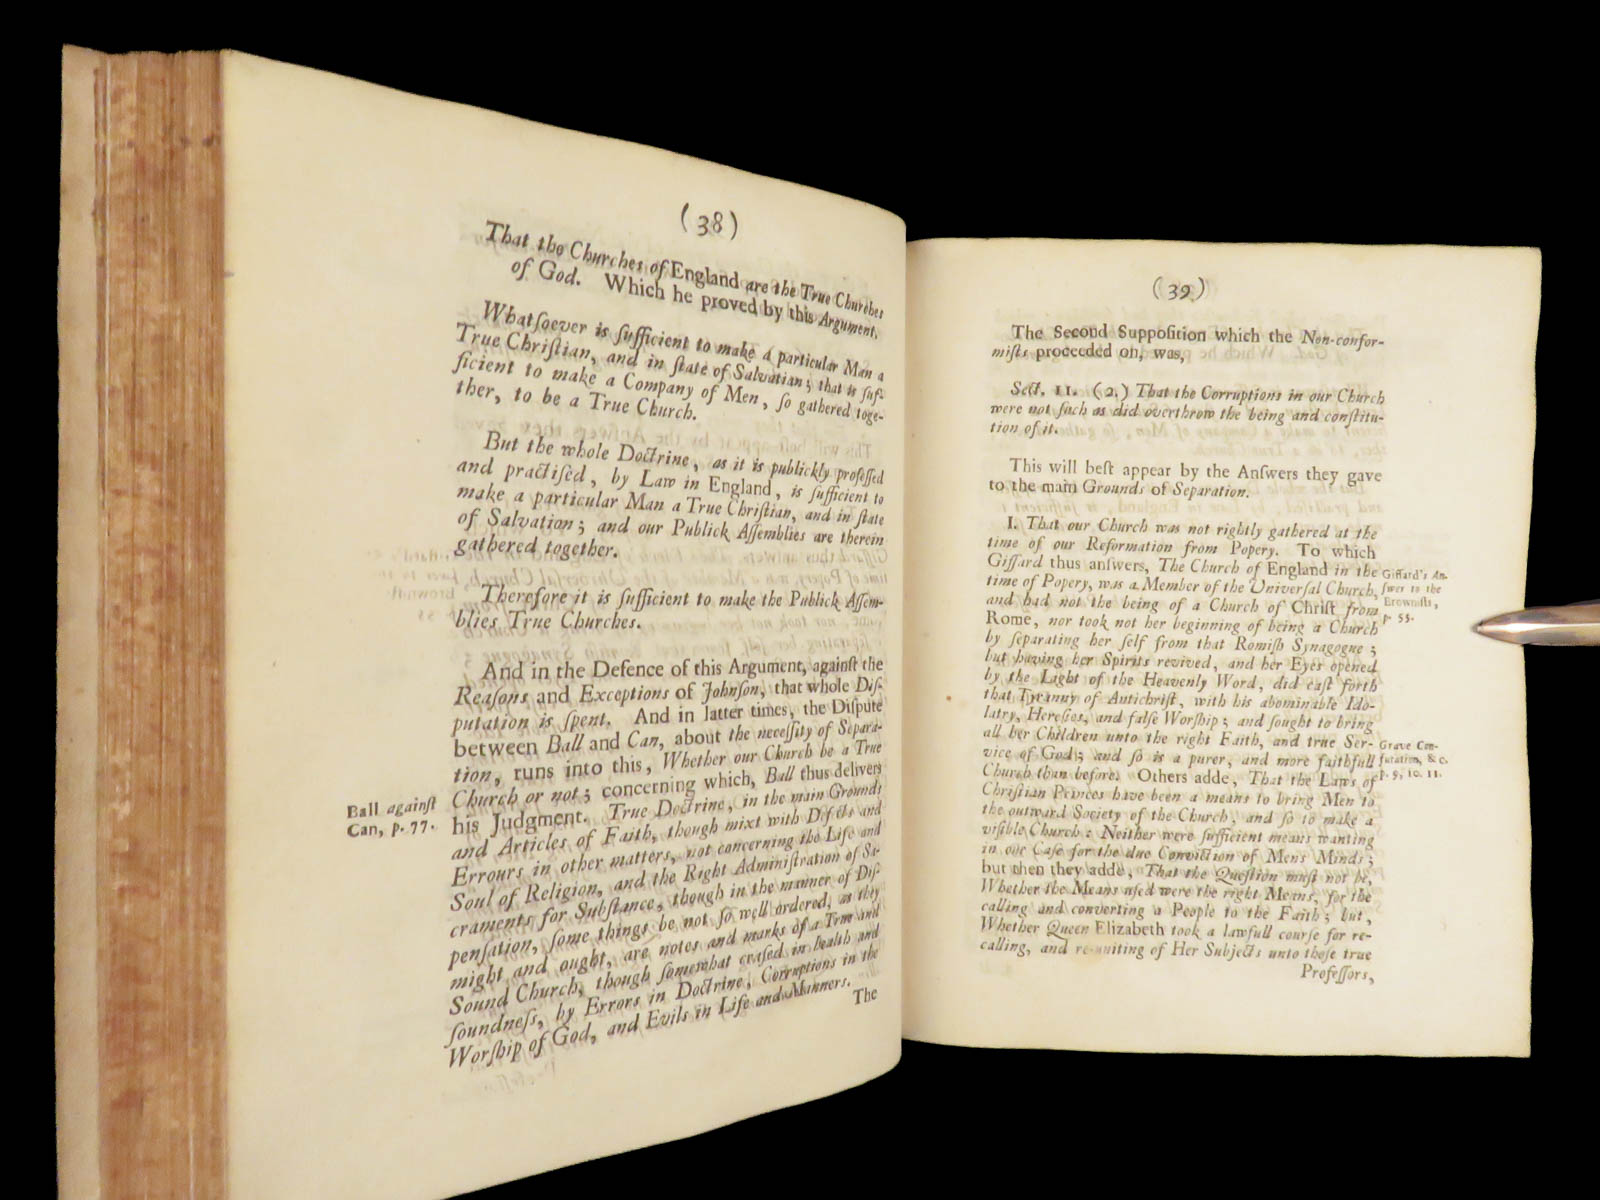 (38)
That the Churches of England are the True Churches
of God. Which he proved by this Argument.
Whatſoever is ſufficient to make a particular Man a
True Chriſtian, and in ſtate of Salvation; that is ſuf-
ficient to make a Company of Men, ſo gathered toge-
ther, to be a True Church.
But the whole Doctrine, as it is publickly profeſſed
and practiſed, by Law in England, is ſufficient to
make a particular Man a True Chriſtian, and in ſtate
of Salvation; and our Publick Aſſemblies are therein
gathered together.
Therefore it is ſufficient to make the Publick Aſſem-
blies True Churches.
And in the Defence of this Argument, againſt the
Reaſons and Exceptions of Johnſon, that whole Diſ-
putation is ſpent. And in latter times, the Diſpute
between Ball and Can, about the neceſſity of Separa-
tion, runs into this, Whether our Church be a True
Church or not; concerning which, Ball thus delivers
his Judgment. True Doctrine, in the main Grounds
and Articles of Faith, though mixt with Defects and
Errours in other matters, not concerning the Life and
Soul of Religion, and the Right Adminiſtration of Sa-
craments for Subſtance, though in the manner of Diſ-
penſation, ſome things be not ſo well ordered, as they
might and ought, are notes and marks of a True and
Sound Church, though ſomewhat craſed in health and
ſoundneſs, by Errors in Doctrine, Corruptions in the
Worſhip of God, and Evils in Life and Manners.
The
Ball againſt
Can, p. 77.
(39)
The Second Suppoſition which the Non-confor-
miſts proceeded on, was,
Sect. 11. (2.) That the Corruptions in our Church
were not ſuch as did overthrow the being and conſtitu-
tion of it.
This will beſt appear by the Anſwers they gave
to the main Grounds of Separation.
I. That our Church was not rightly gathered at the
time of our Reformation from Popery. To which
Giffard thus anſwers, The Church of England in the
time of Popery, was a Member of the Univerſal Church,
and had not the being of a Church of Chriſt from
Rome, nor took not her beginning of being a Church
by ſeparating her ſelf from that Romiſh Synagogue;
but having her Spirits revived, and her Eyes opened
by the Light of the Heavenly Word, did caſt forth
that Tyranny of Antichriſt, with his abominable Ido-
latry, Hereſies, and falſe Worſhip; and ſought to bring
all her Children unto the right Faith, and true Ser-
vice of God; and ſo is a purer, and more faithfull
Church than before. Others adde, That the Laws of
Chriſtian Princes have been a means to bring Men to
the outward Society of the Church, and ſo to make a
viſible Church: Neither were ſufficient means wanting
in our Caſe for the due Conviction of Mens Minds;
but then they adde, That the Queſtion muſt not be,
Whether the Means uſed were the right Means, for the
calling and converting a People to the Faith; but,
Whether Queen Elizabeth took a lawfull courſe for re-
calling, and re-uniting of Her Subjects unto thoſe true
Profeſſors,
Giffard's An-
ſwer to the
Browniſts,
p. 55.
Grave Con-
futation, &c.
p. 9, 10. 11.